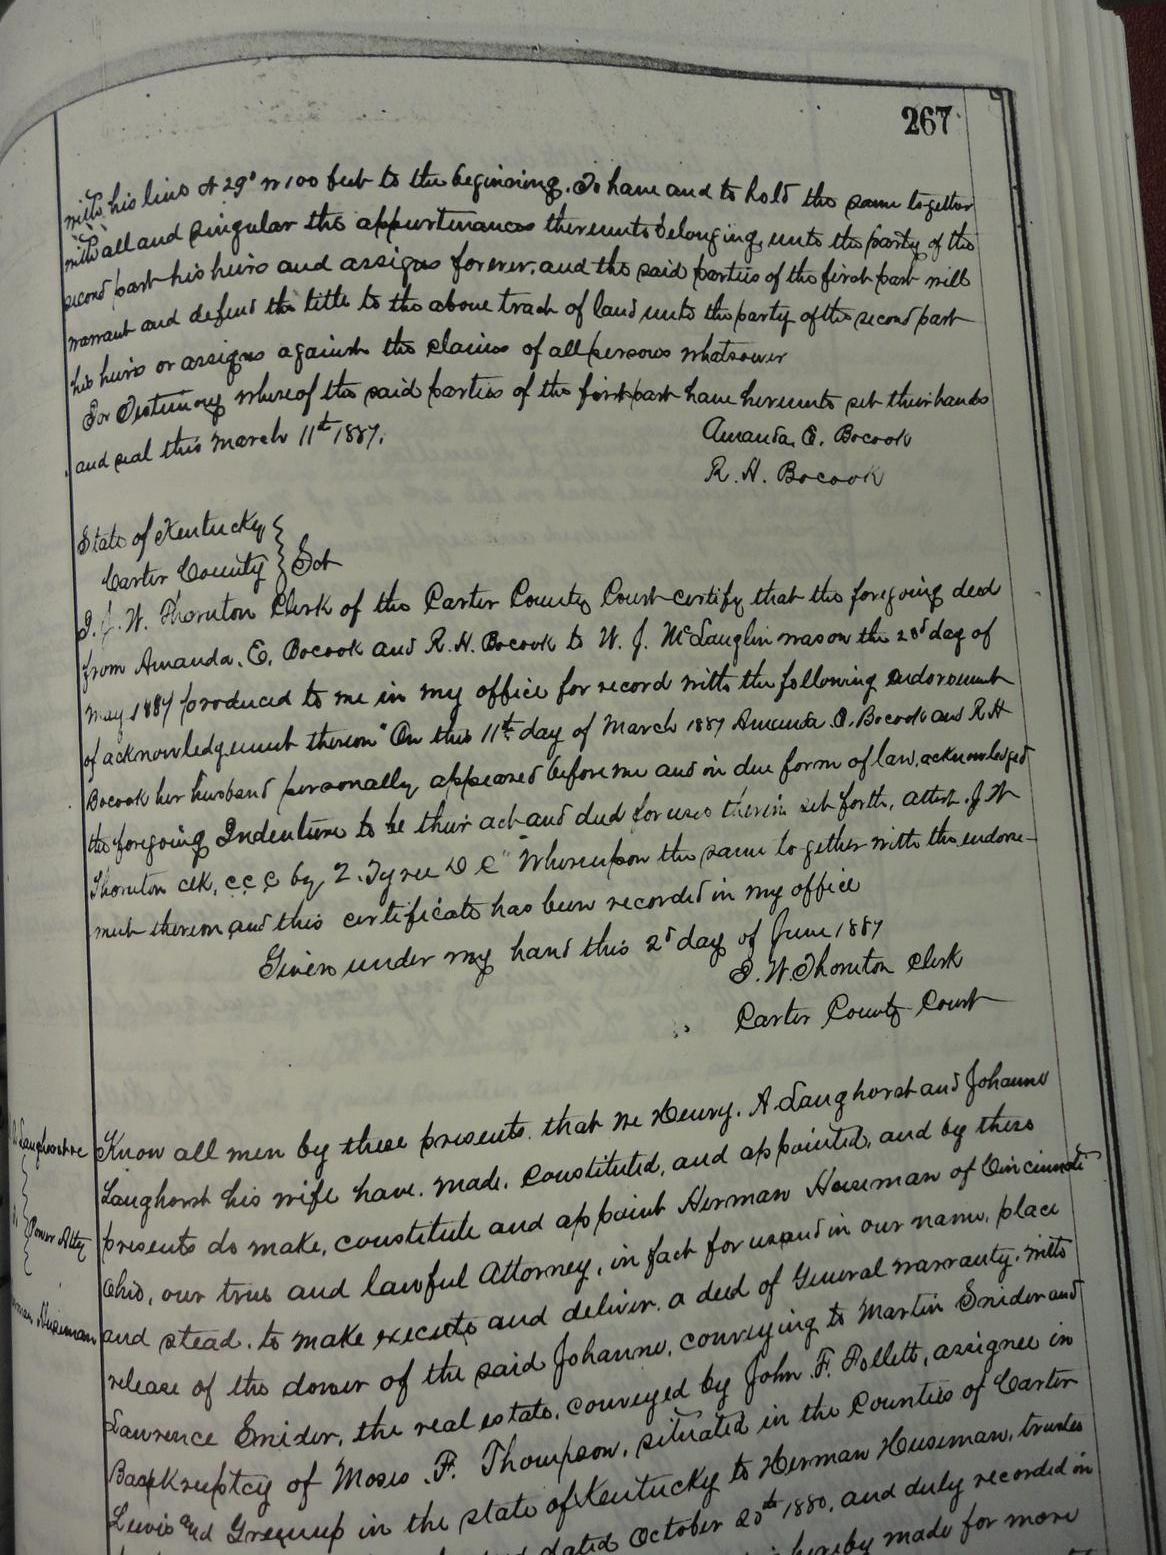 267
with his line N 29° W 100 feet to the beginning. To have and to hold the same together
with all and singular the appurtenances thereunto belonging, unto the party of the
second part his heirs and assigns forever, and the said parties of the first part will
warrant and defend the title to the above tract of land unto the party of the second part
his heirs or assigns against the claims of all persons whatsoever
For Testimony whereof the said parties of the first part have hereunto set their hands
and seal this March 11th 1887.
Amanda. E. Bocook
R. H. Bocook
State of Kentucky
Carter County } Sct
I. J. W. Thornton Clerk of the Carter County Court certify that the foregoing deed
from Amanda. E. Bocook and R. H. Bocook to W. J. McLauglin was on the 28d day of
May 1887 produced to me in my office for record with the following endorsement
of acknowledgement thereon "On this 11th day of March 1887 Amanda E. Bocook and R H
Bocook her husband personally appeared before me and in due form of law, acknowledged
the foregoing Indenture to be their act and deed for uses therein set forth, attest. J. W
Thornton clk, C C C by, Z. Tyree D C" Whereupon the same together with the endorse-
ment thereon and this certificate has been recorded in my office
Given under my hand this 2d day of June 1887
J. W. Thornton Clerk
Carter County Court
Know all men by these presents. that we Henry. A Langhorst and Johanne
Langhorst his wife have. made. Constituted, and appointed, and by these
presents do make, constitute and appoint Herman Heuseman of Cincinnati
Ohio, our true and lawful Attorney, in fact for us and in our name, place
Power Atty
and stead. to make execute and deliver. a deed of General warranty. with
release of the dower of the said Johanne, conveying to Martin Snider and
Lawrence Snider, the real estate. conveyed by John. F. Follett, assignee in
Bankruptcy of Moses. F. Thompson, situated in the Counties of Carter
Lewis and Greenup in the state of Kentucky to Herman Heuseman, trustee
dated October 25th 1880, and duly recorded in
hereby made for more